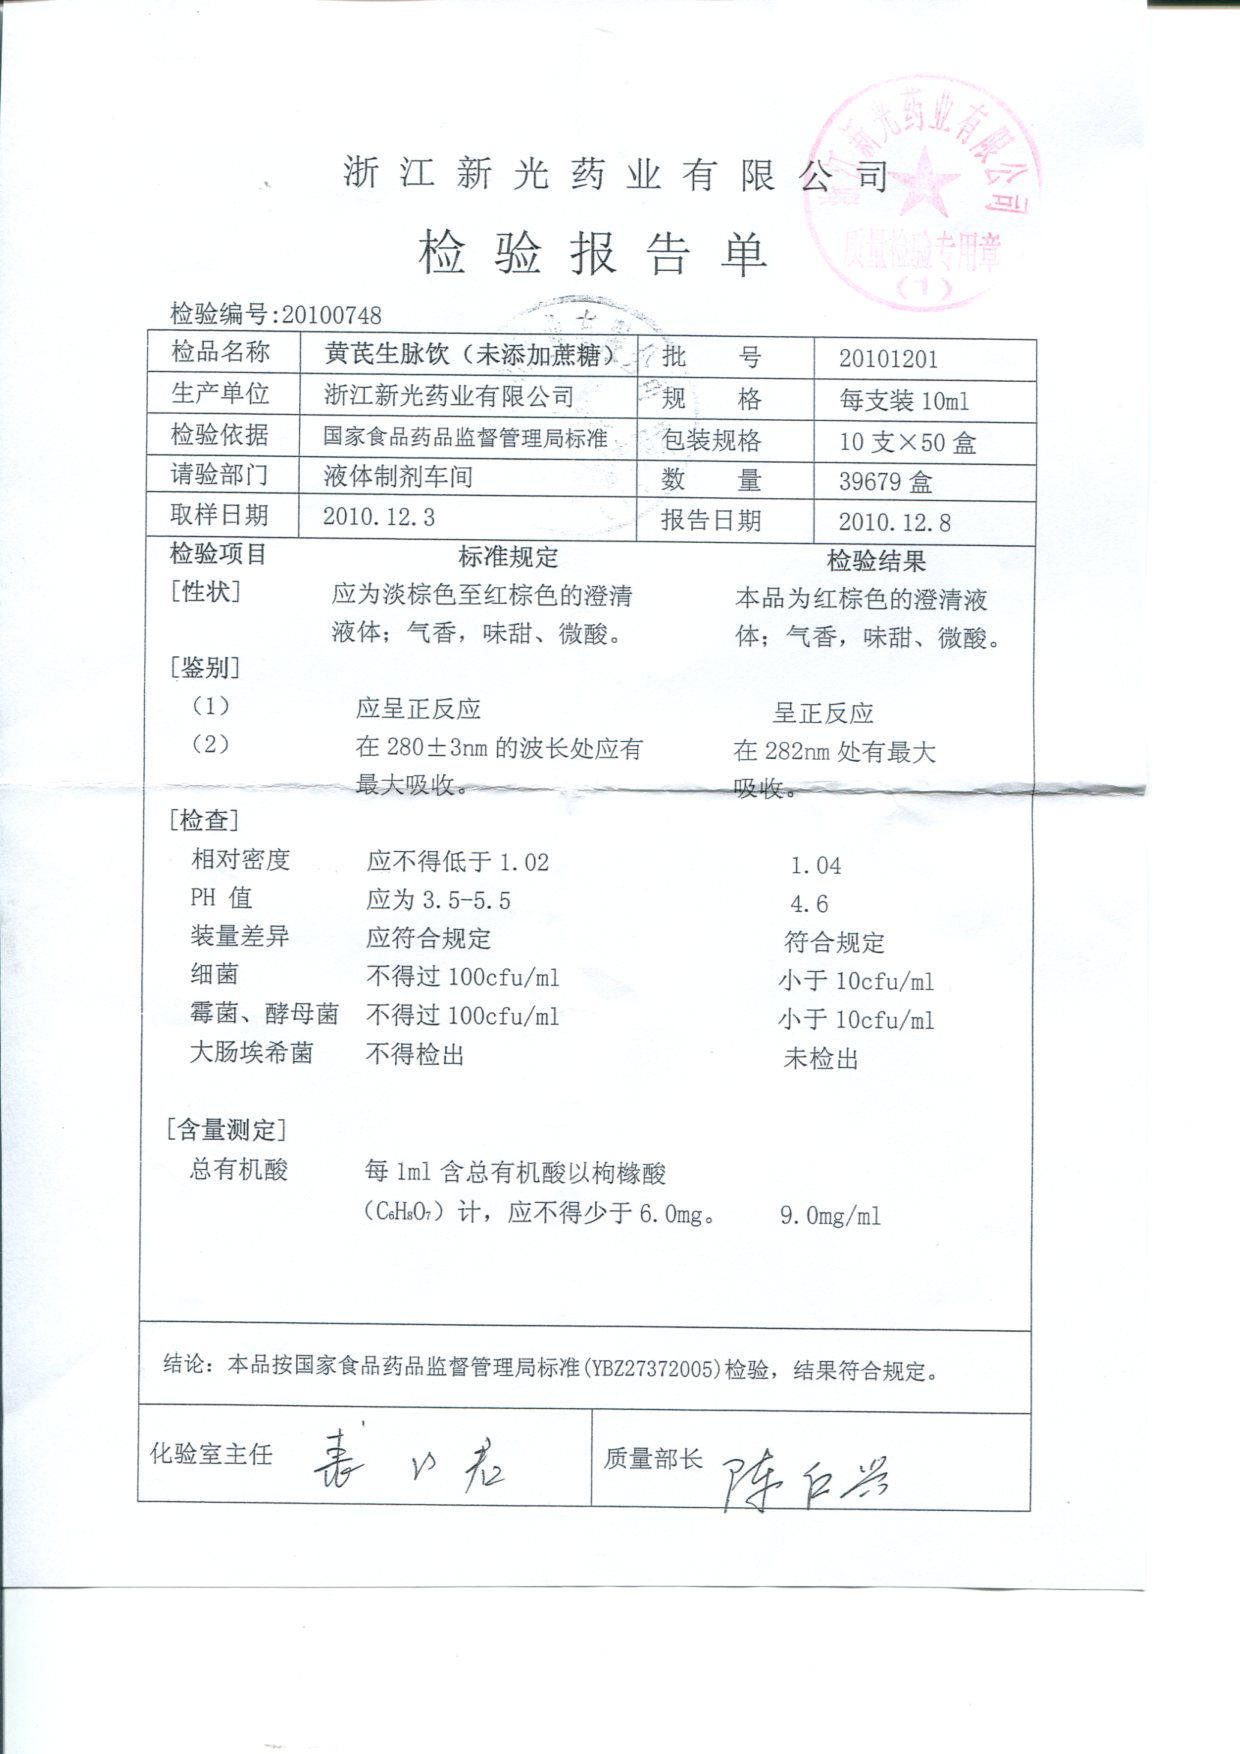 浙江新光药业有限公司
检验报告单
浙江新光药业有限公司
质量检验专用章
(1)
检验编号:20100748
检品名称 黄芪生脉饮（未添加蔗糖） 批 号 20101201
生产单位 浙江新光药业有限公司 规 格 每支装10ml
检验依据 国家食品药品监督管理局标准 包装规格 10支×50盒
请验部门 液体制剂车间 数 量 39679盒
取样日期 2010.12.3 报告日期 2010.12.8
检验项目 标准规定 检验结果
[性状] 应为淡棕色至红棕色的澄清 本品为红棕色的澄清液
液体；气香，味甜、微酸。 体；气香，味甜、微酸。
[鉴别]
（1） 应呈正反应 呈正反应
（2） 在280±3nm的波长处应有 在282nm处有最大
最大吸收。 吸收。
[检查]
相对密度 应不得低于1.02 1.04
PH 值 应为3.5-5.5 4.6
装量差异 应符合规定 符合规定
细菌 不得过100cfu/ml 小于10cfu/ml
霉菌、酵母菌 不得过100cfu/ml 小于10cfu/ml
大肠埃希菌 不得检出 未检出
[含量测定]
总有机酸 每1ml含总有机酸以枸橼酸
（C₆H₈O₇）计，应不得少于6.0mg。 9.0mg/ml
结论：本品按国家食品药品监督管理局标准(YBZ27372005)检验，结果符合规定。
化验室主任 质量部长